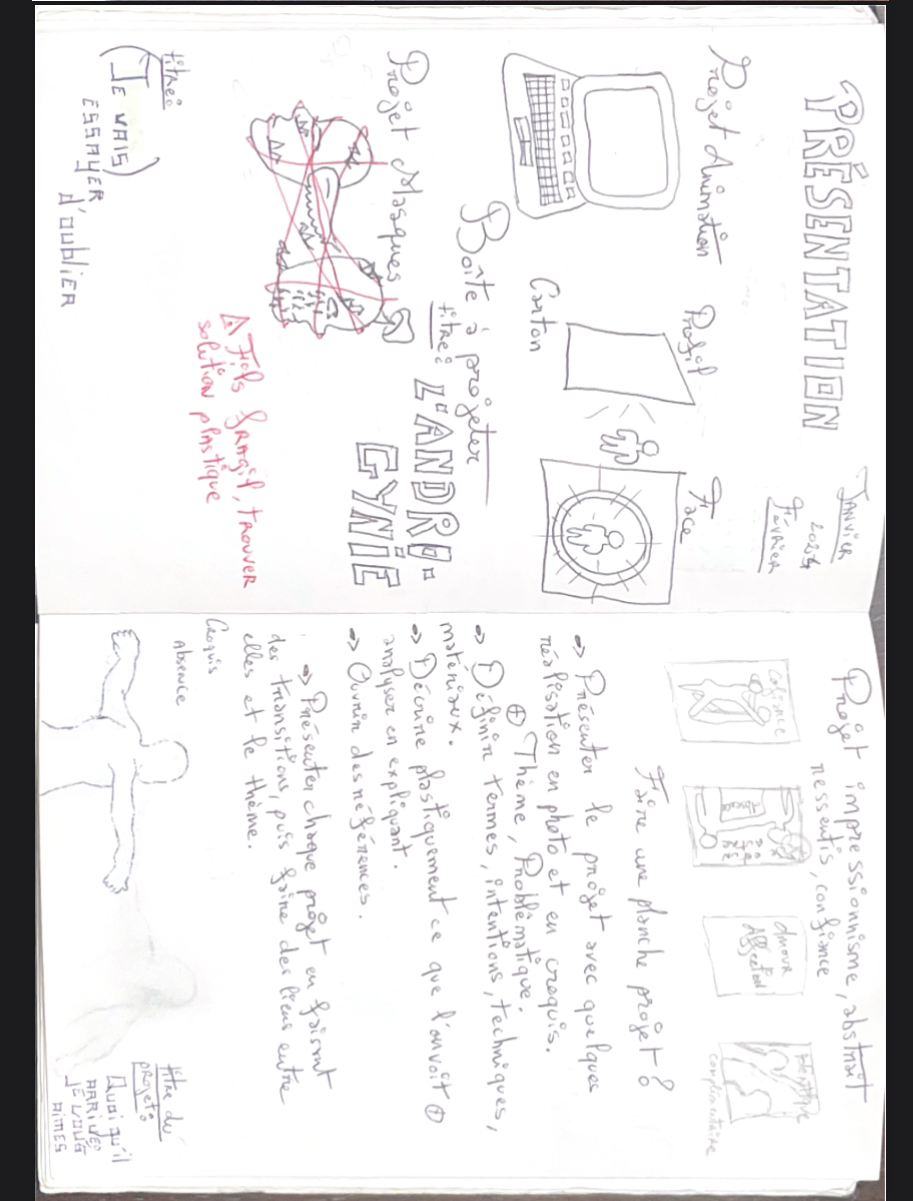 PRÉSENTATION
JANVIER
2024
FÉVRIER
Projet Animation
Profil
Face
Carton
Boîte à projeter
Projet Masques
titre:
L'ANDRO-
GYNIE
⚠ Fiels fragil, trouver
solution plastique
titre:
(JE VAIS)
ESSAYER
d'oublier
Projet impressionnisme, abstrait
ressentis, confiance
Amour
Affection
complémentaire
Faire une planche projet?
=> Présenter le projet avec quelques
réalisation en photo et en croquis.
⊕ Thème, Problématique.
=> Définir termes, intentions, techniques,
matériaux.
=> Décrire plastiquement ce que l'on voit ⊕
analyser en expliquant.
=> Ouvrir des références.
=> Présenter chaque projet en faisant
des transitions, puis faire des liens entre
elles et le thème.
Croquis
Absence
titre du
projet:
Quoi qu'il
ARRIVE
JE VOUS
AIMES